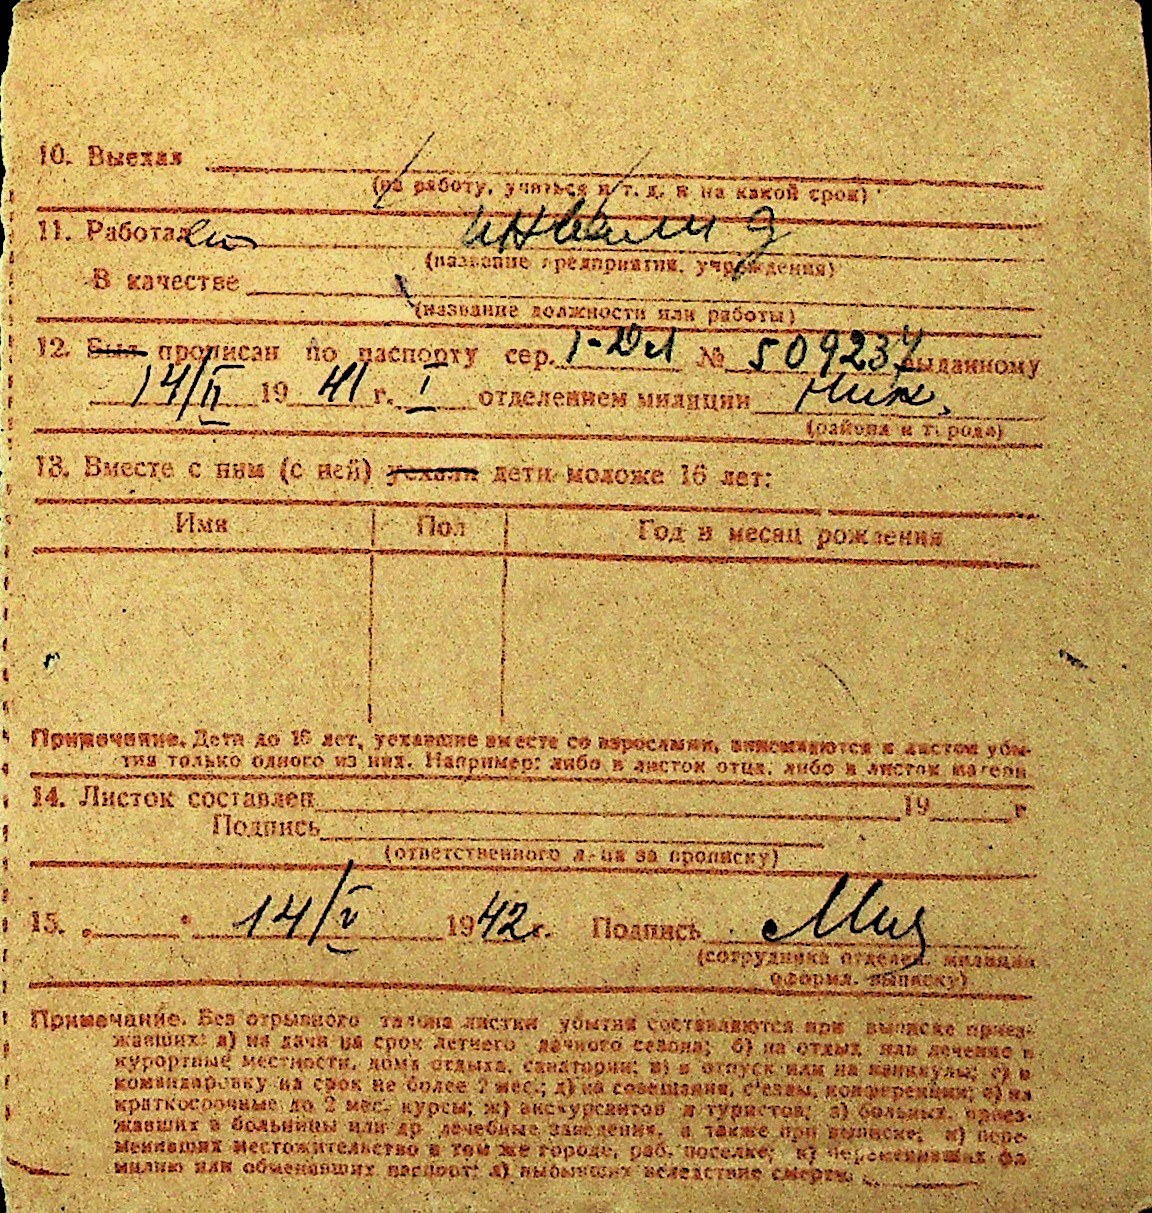 10. Выехал
(на работу, учиться и т. д. и на какой срок)
11. Работал инвалид
(название предприятия, учреждения)
В качестве
(название должности или работы)
12. Был прописан по паспорту сер. № 509237 выданному
14/II 1941 г. I отделением милиции Ник.
(района и города)
13. Вместе с ним (с ней) уехали дети моложе 16 лет:
Имя Пол Год и месяц рождения
Примечание. Дети до 16 лет, уехавшие вместе со взрослыми, вписываются в листок убы-
тия только одного из них. Например: либо в листок отца, либо в листок матери
14. Листок составлен 19 г
Подпись
(ответственного лица за прописку)
15. „ “ 14/V 1942 г. Подпись
(сотрудника отделен. милиции
оформл. выписку)
Примечание. Без отрывного талона листки убытия составляются при выписке приез-
жавших: а) на дачи на срок летнего дачного сезона; б) на отдых или лечение в
курортные местности, дома отдыха, санатории; в) в отпуск или на каникулы; г) в
командировку на срок не более 2 мес.; д) на совещания, с'езды, конференции; е) на
краткосрочные до 2 мес. курсы; ж) экскурсантов и туристов; з) больных, приез-
жавших в больницы или др лечебные заведения, а также при выписке; и) пере-
менивших местожительство в том же городе, раб. поселке; к) переменивших фа-
милию или обменявших паспорт; л) выбывших вследствие смерти.